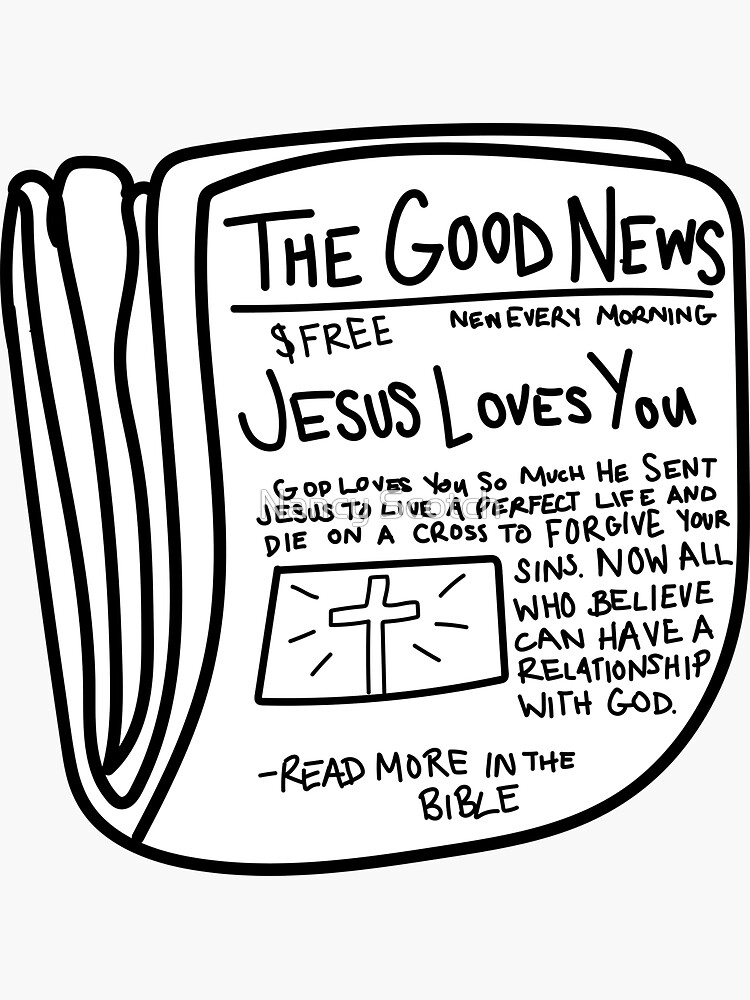 THE GOOD NEWS
$FREE
NEW EVERY MORNING
JESUS LOVES YOU
GOD LOVES YOU SO MUCH HE SENT
JESUS TO LIVE A PERFECT LIFE AND
DIE ON A CROSS TO FORGIVE YOUR
SINS. NOW ALL
WHO BELIEVE
CAN HAVE A
RELATIONSHIP
WITH GOD.
-READ MORE IN THE
BIBLE
Nancy Scotch